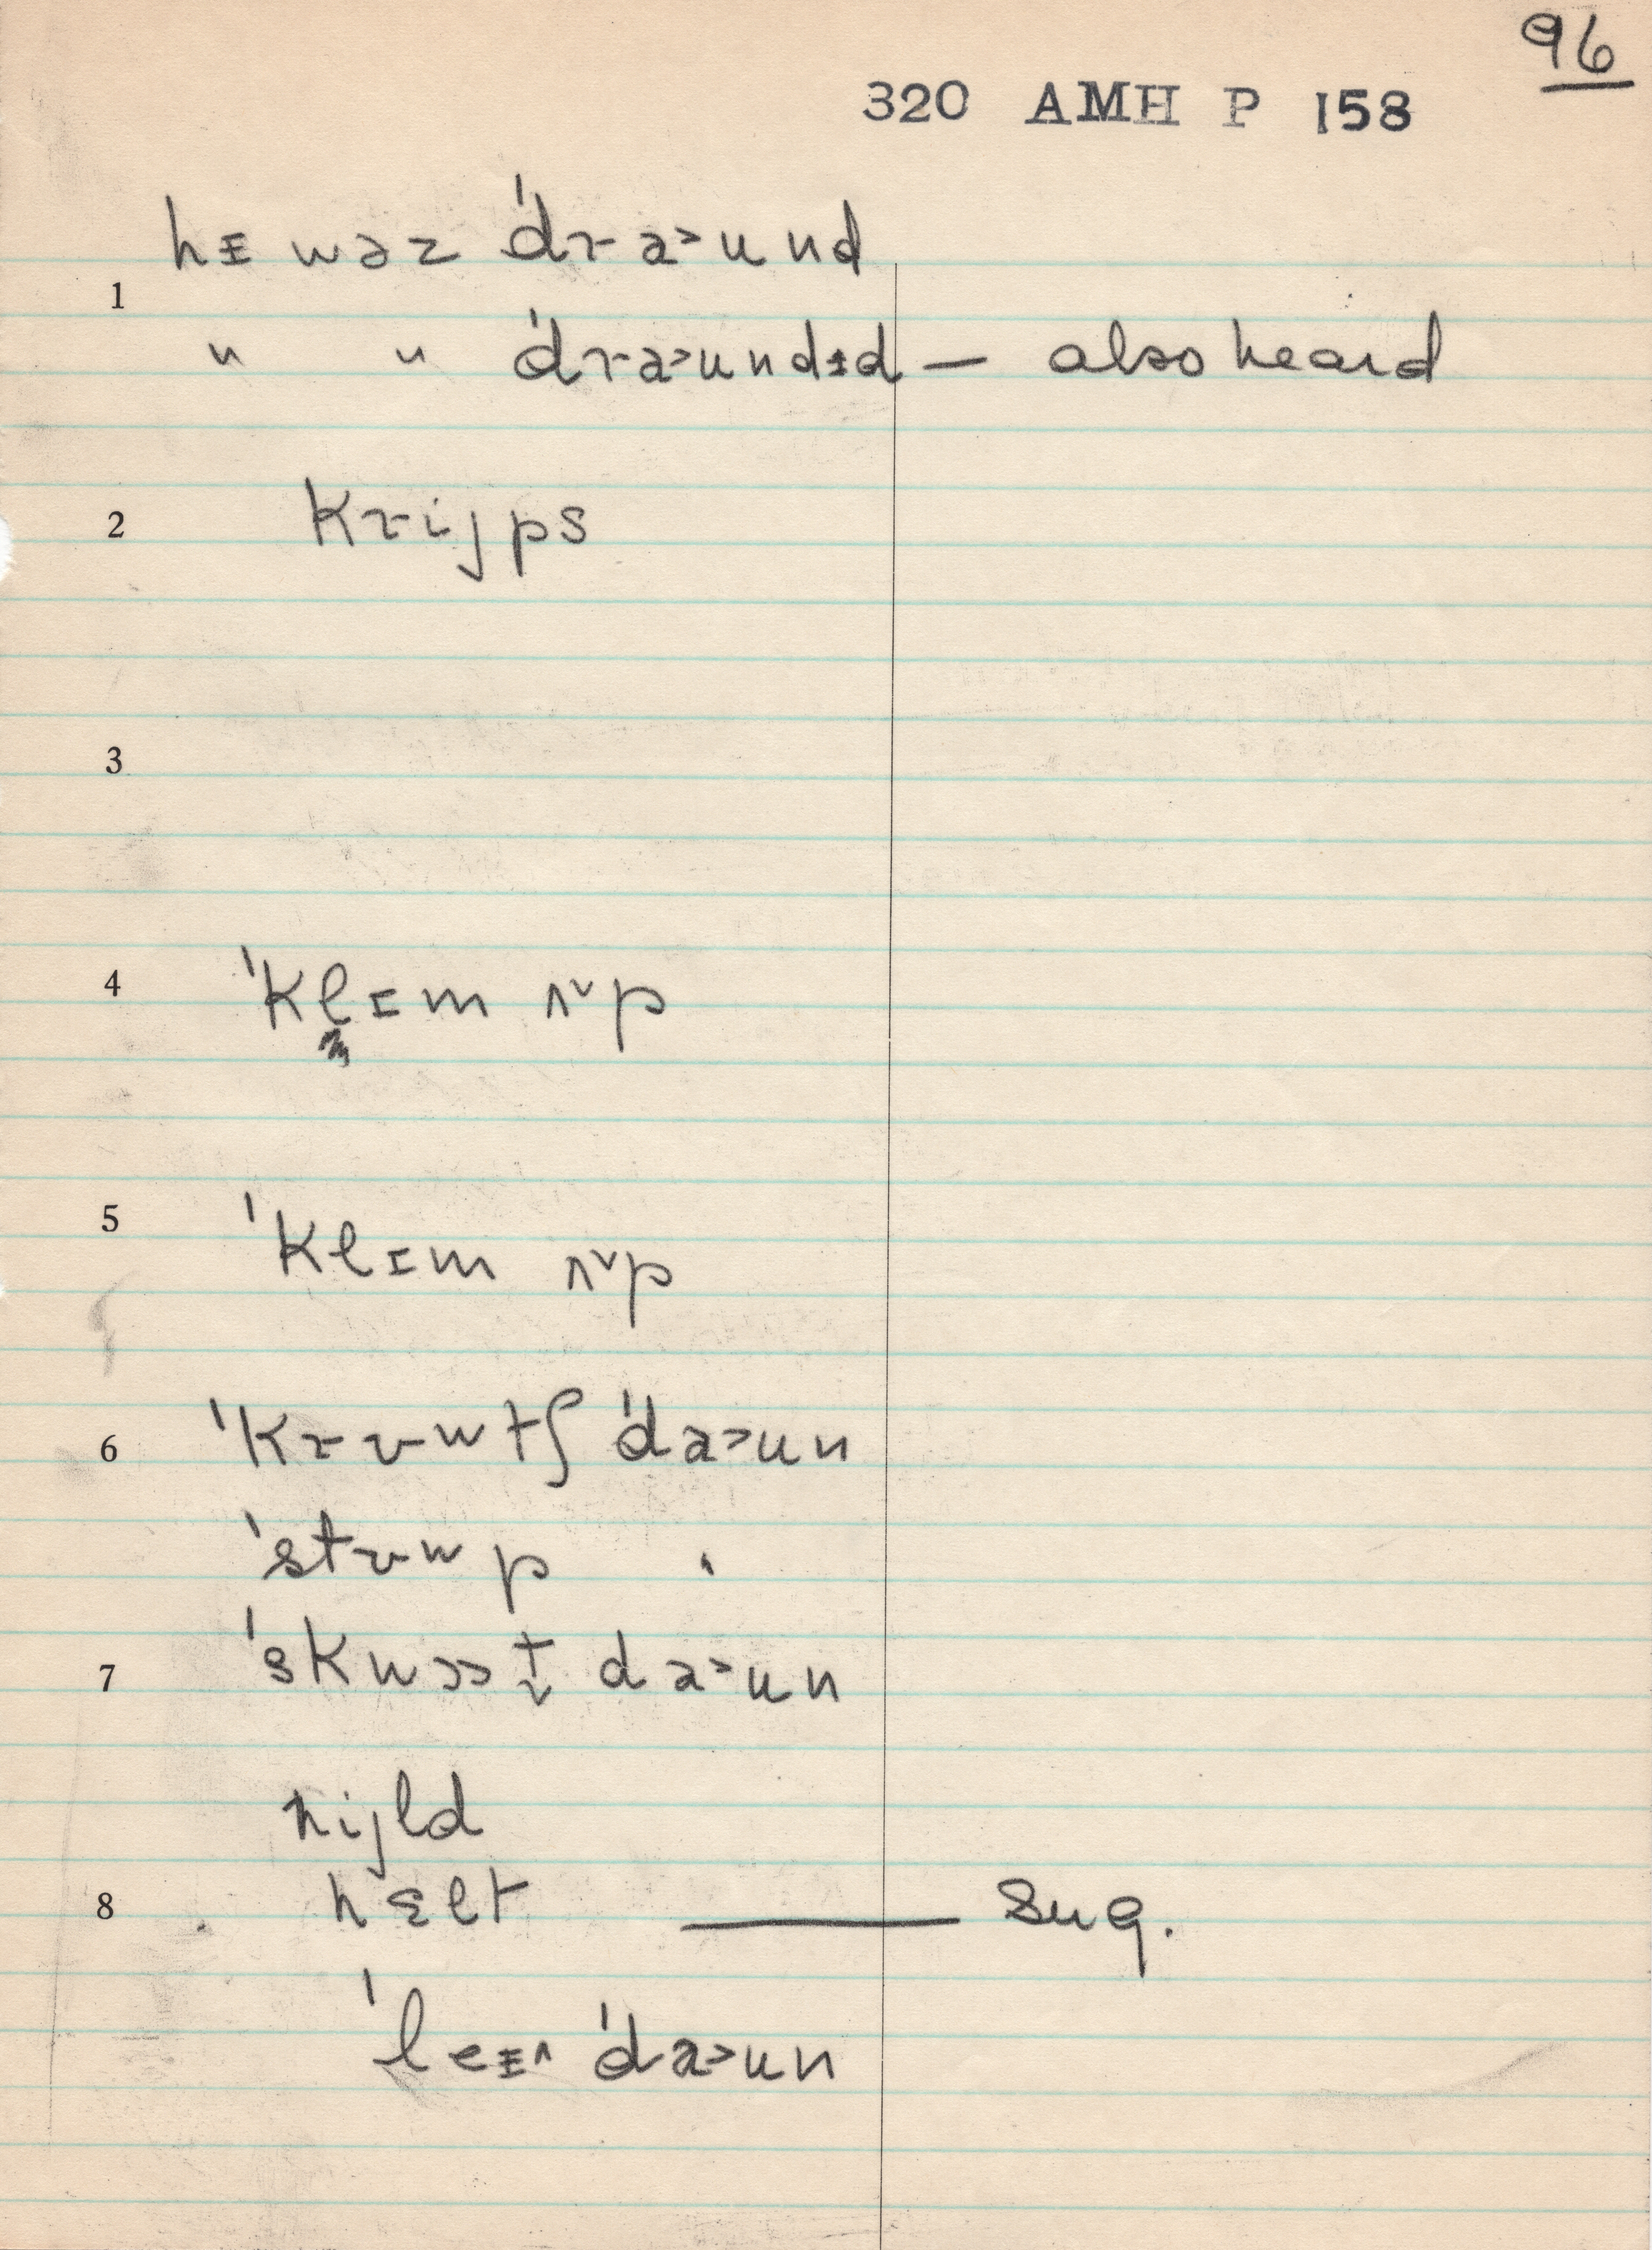 96
320 AMH P 158
hɪ wəz ˈdra˃und
1
" " ˈdra˃undɨd — also heard
2 krijps
3
4 ˈklɪm ʌ˅p
5 ˈklɪm ʌ˅p
6 ˈkrʊwtʃ ˈda˃un
ˈstʊwp "
7 ˈskwɔɔt̬ da˃un
nijld
8 nɛlt — sug.
ˈleɪ^ ˈda˃un